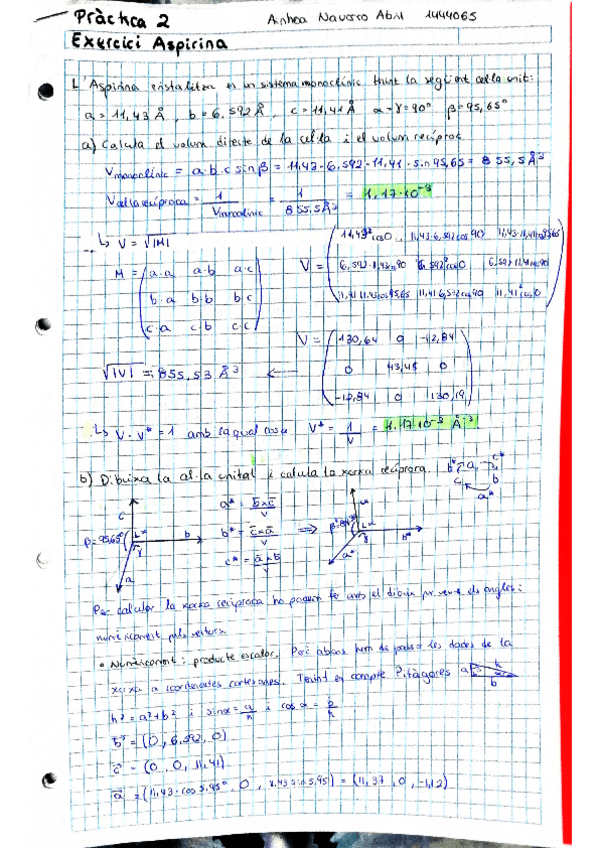 Pràctica 2 Ainhoa Navarro Abril 1444065
Exercici Aspirina
L'Aspirina cristalitza en un sistema monoclínic tenint la següent cel·la unit:
a = 11,43 Å , b = 6,592 Å , c = 11,41 Å α = γ = 90° β = 95,65°
a) Calcula el volum directe de la cel·la i el volum recíproc
Vmonoclínic = a·b·c sinβ = 11,43·6,592·11,41·sin95,65 = 855,5 Å³
Vcel·la recíproca = 1/Vmonoclínic = 1/855,5 Å³ = 1,17·10⁻³
↳ V = √|M|
M = ( a·a a·b a·c
b·a b·b b·c
c·a c·b c·c )
V = ( 11,43² cos0 11,43·6,592 cos90 11,43·11,41 cos95,65
6,592·11,43 cos90 6,592² cos0 6,592·11,41 cos90
11,41·11,43 cos95,65 11,41·6,592 cos90 11,41² cos0 )
V = ( 130,64 0 -12,84
0 43,45 0
-12,84 0 130,19 )
√|V| = 855,53 Å³ ←
↳ V·V* = 1 amb la qual cosa V* = 1/V = 1,17·10⁻³ Å⁻³
b) Dibuixa la cel·la unital i calcula la xarxa recíproca.
a* = b̄×c̄/V
b* = c̄×ā/V ⇒
c* = ā×b̄/V
β=95,65° c α γ b a
α γ b* a*
b* a c* c b a*
Per calcular la xarxa recíproca ho podem fer amb el dibuix per veure els angles i
numèricament pels vectors.
• Numèricament: producte escalar. Però abans hem de passar les dades de la
xarxa a coordenades cartesianes. Tenint en compte Pitàgores a h b
h² = a² + b² i sinα = a/h i cos α = b/h
b⃗ = (0, 6,592, 0)
c⃗ = (0, 0, 11,41)
a⃗ = (11,43·cos 5,95°, 0, 11,43 sin 5,95) = (11,37, 0, -1,12)